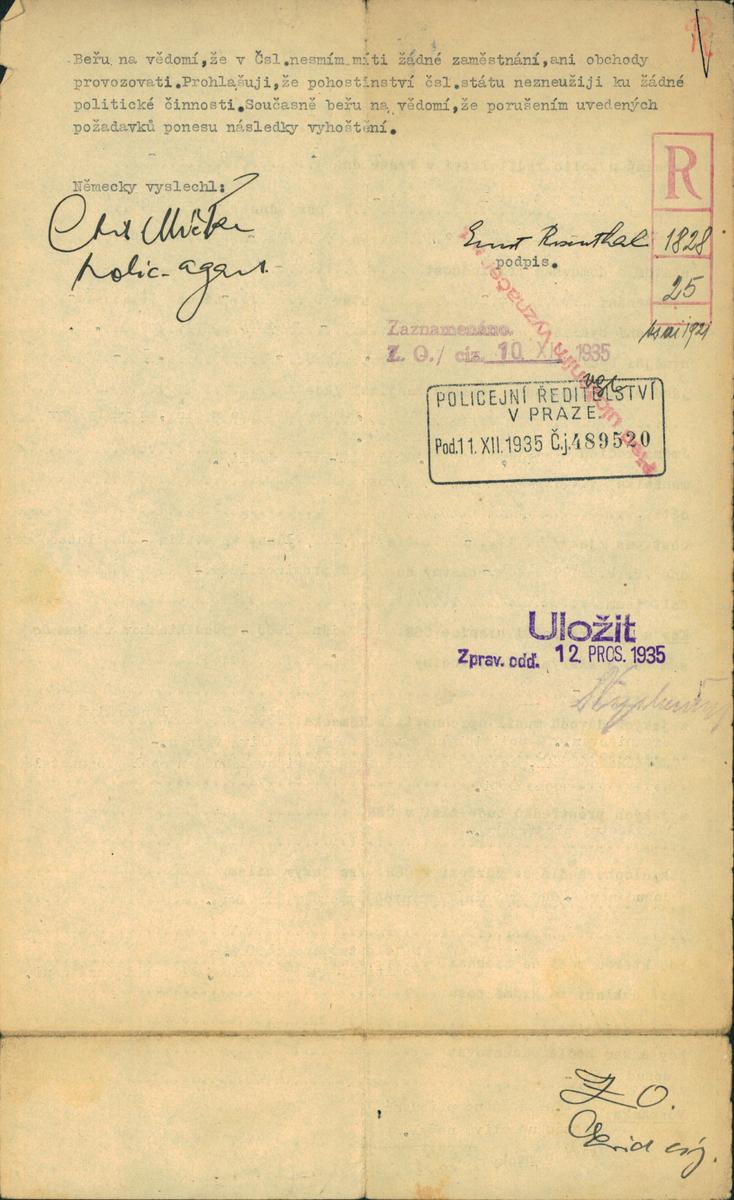 Beřu na vědomí,že v Čsl.nesmím míti žádné zaměstnání,ani obchody
provozovati.Prohlašuji,že pohostinství čsl.státu nezneužiji ku žádné
politické činnosti.Současně beřu na vědomí,že porušením uvedených
požadavků ponesu následky vyhoštění.
Německy vyslechl:
polic. agent
Ernst Rosenthal
podpis.
R
1828
25
Zaznamenáno
Z. O./ ciz. 10 XII 1935
POLICEJNÍ ŘEDITELSTVÍ
V PRAZE.
Pod.11.XII.1935 Č.j.489520
Uložit
Zprav. odd. 12. PROS. 1935
Z O.